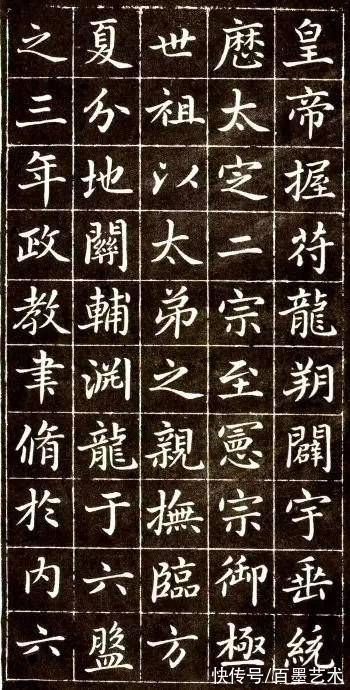 皇帝握苻龍朔闢宇垂統
厯太定二宗至憲宗御極
世祖以太弟之親撫臨方
夏分地關輔渕龍于六盤
之三年政教聿脩於内六
快传号/百墨艺术